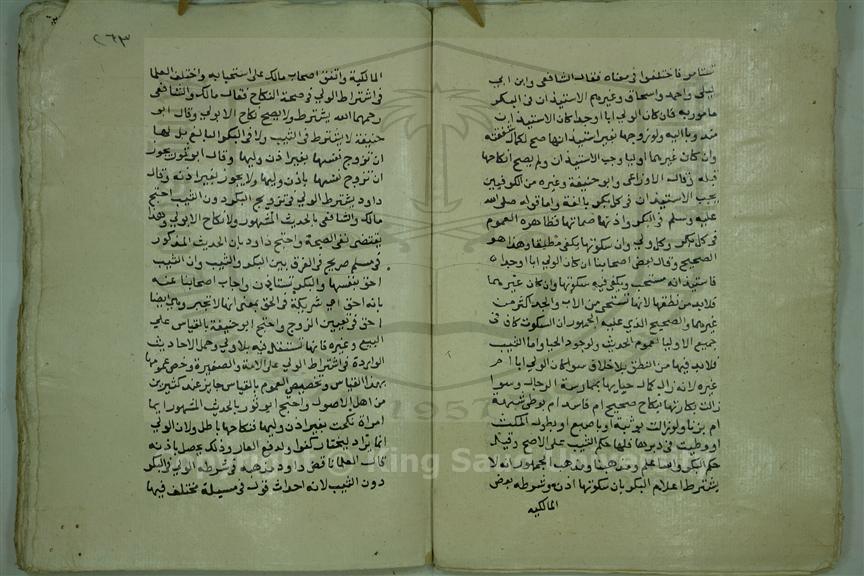 تستامر فاختلفوا في معناه فقال الشافعي وابن ابي
ليلى واحمد واسحاق وغيرهم الاستيذان في البكر
مامور به فان كان الولي ابا او جدا كان الاستيذان
مندوبا اليه ولو زوجها بغير استيذانها صح لكمال شفقته
وان كان غيرهما اوليا وجب الاستيذان ولم يصح انكاحها
قبله وقال الاوزاعي وابو حنيفة وغيره من الكوفيين
يجب الاستيذان في كل بكر بالغة واما قوله صلى الله
عليه وسلم في البكر واذنها صماتها فظاهره العموم
في كل بكر وكل ولي وان سكوتها يكفي مطلقا وهذا هو
الصحيح وقال بعض اصحابنا ان كان الولي ابا او جدا
فاستيذانه مستحب ويكفي فيه سكوتها وان كان غيرهما
فلابد من نطقها لانها تستحي من الاب والجد اكثر من
غيرهما والصحيح الذي عليه الجمهور ان السكوت كاف في
جميع الاوليا لعموم الحديث ولوجود الحيا واما الثيب
فلابد فيها من النطق بلا خلاف سوا كان الولي ابا ام
غيره لانه زال كمال حيايها بممارسة الرجال وسوا
زالت بكارتها بنكاح صحيح ام فاسد ام بوطي شبهة
ام بزنا ولو زالت بوثبة او باصبع او بطول المكث
او وطيت في دبرها فلها حكم الثيب على الاصح وقيل
حكم البكر والله اعلم ومذهبنا ومذهب الجمهور انه لا
يشترط اعلام البكر بان سكوتها اذن وشرطه بعض
المالكيه
٢٦٣
المالكية واتفق اصحاب مالك على استحبابه واختلف العلما
في اشتراط الولي في صحة النكاح فقال مالك والشافعي
رحمهما الله يشترط ولا يصح نكاح الا بولي وقال ابو
حنيفة لا يشترط في الثيب ولا في البكر البالغ بل لها
ان تزوج نفسها بغير اذن وليها وقال ابو ثور يجوز
ان تزوج نفسها باذن وليها ولا يجوز بغير اذنه وقال
داود يشترط الولي في تزويج البكر دون الثيب احتج
مالك والشافعي بالحديث المشهور لا نكاح الا بولي وهذا
يقتضي نفي الصحة واحتج داود بان الحديث المذكور
في مسلم صريح في الفرق بين البكر والثيب وان الثيب
احق بنفسها والبكر تستاذن واجاب اصحابنا عنه
بانه احق اي شريكة في الحق بمعنى انها لا تجبر وهي ايضا
احق في تعيين الزوج واحتج ابو حنيفة بالقياس على
البيع وغيره فانها تستقل فيه بلا ولي وحمل الاحاديث
الواردة في اشتراط الولي على الامة والصغيرة وخص عمومها
بهذا القياس وتخصيص العموم بالقياس جايز عند كثيرين
من اهل الاصول واحتج ابو ثور بالحديث المشهور ايما
امراة نكحت بغير اذن وليها فنكاحها باطل ولان الولي
انما يراد ليختار كفوا ولدفع العار وذلك يحصل باذنه
قال العلما ناقض داود مذهبه في شرط الولي في البكر
دون الثيب لانه احداث قول في مسيلة مختلف فيها
1957
King Saud University